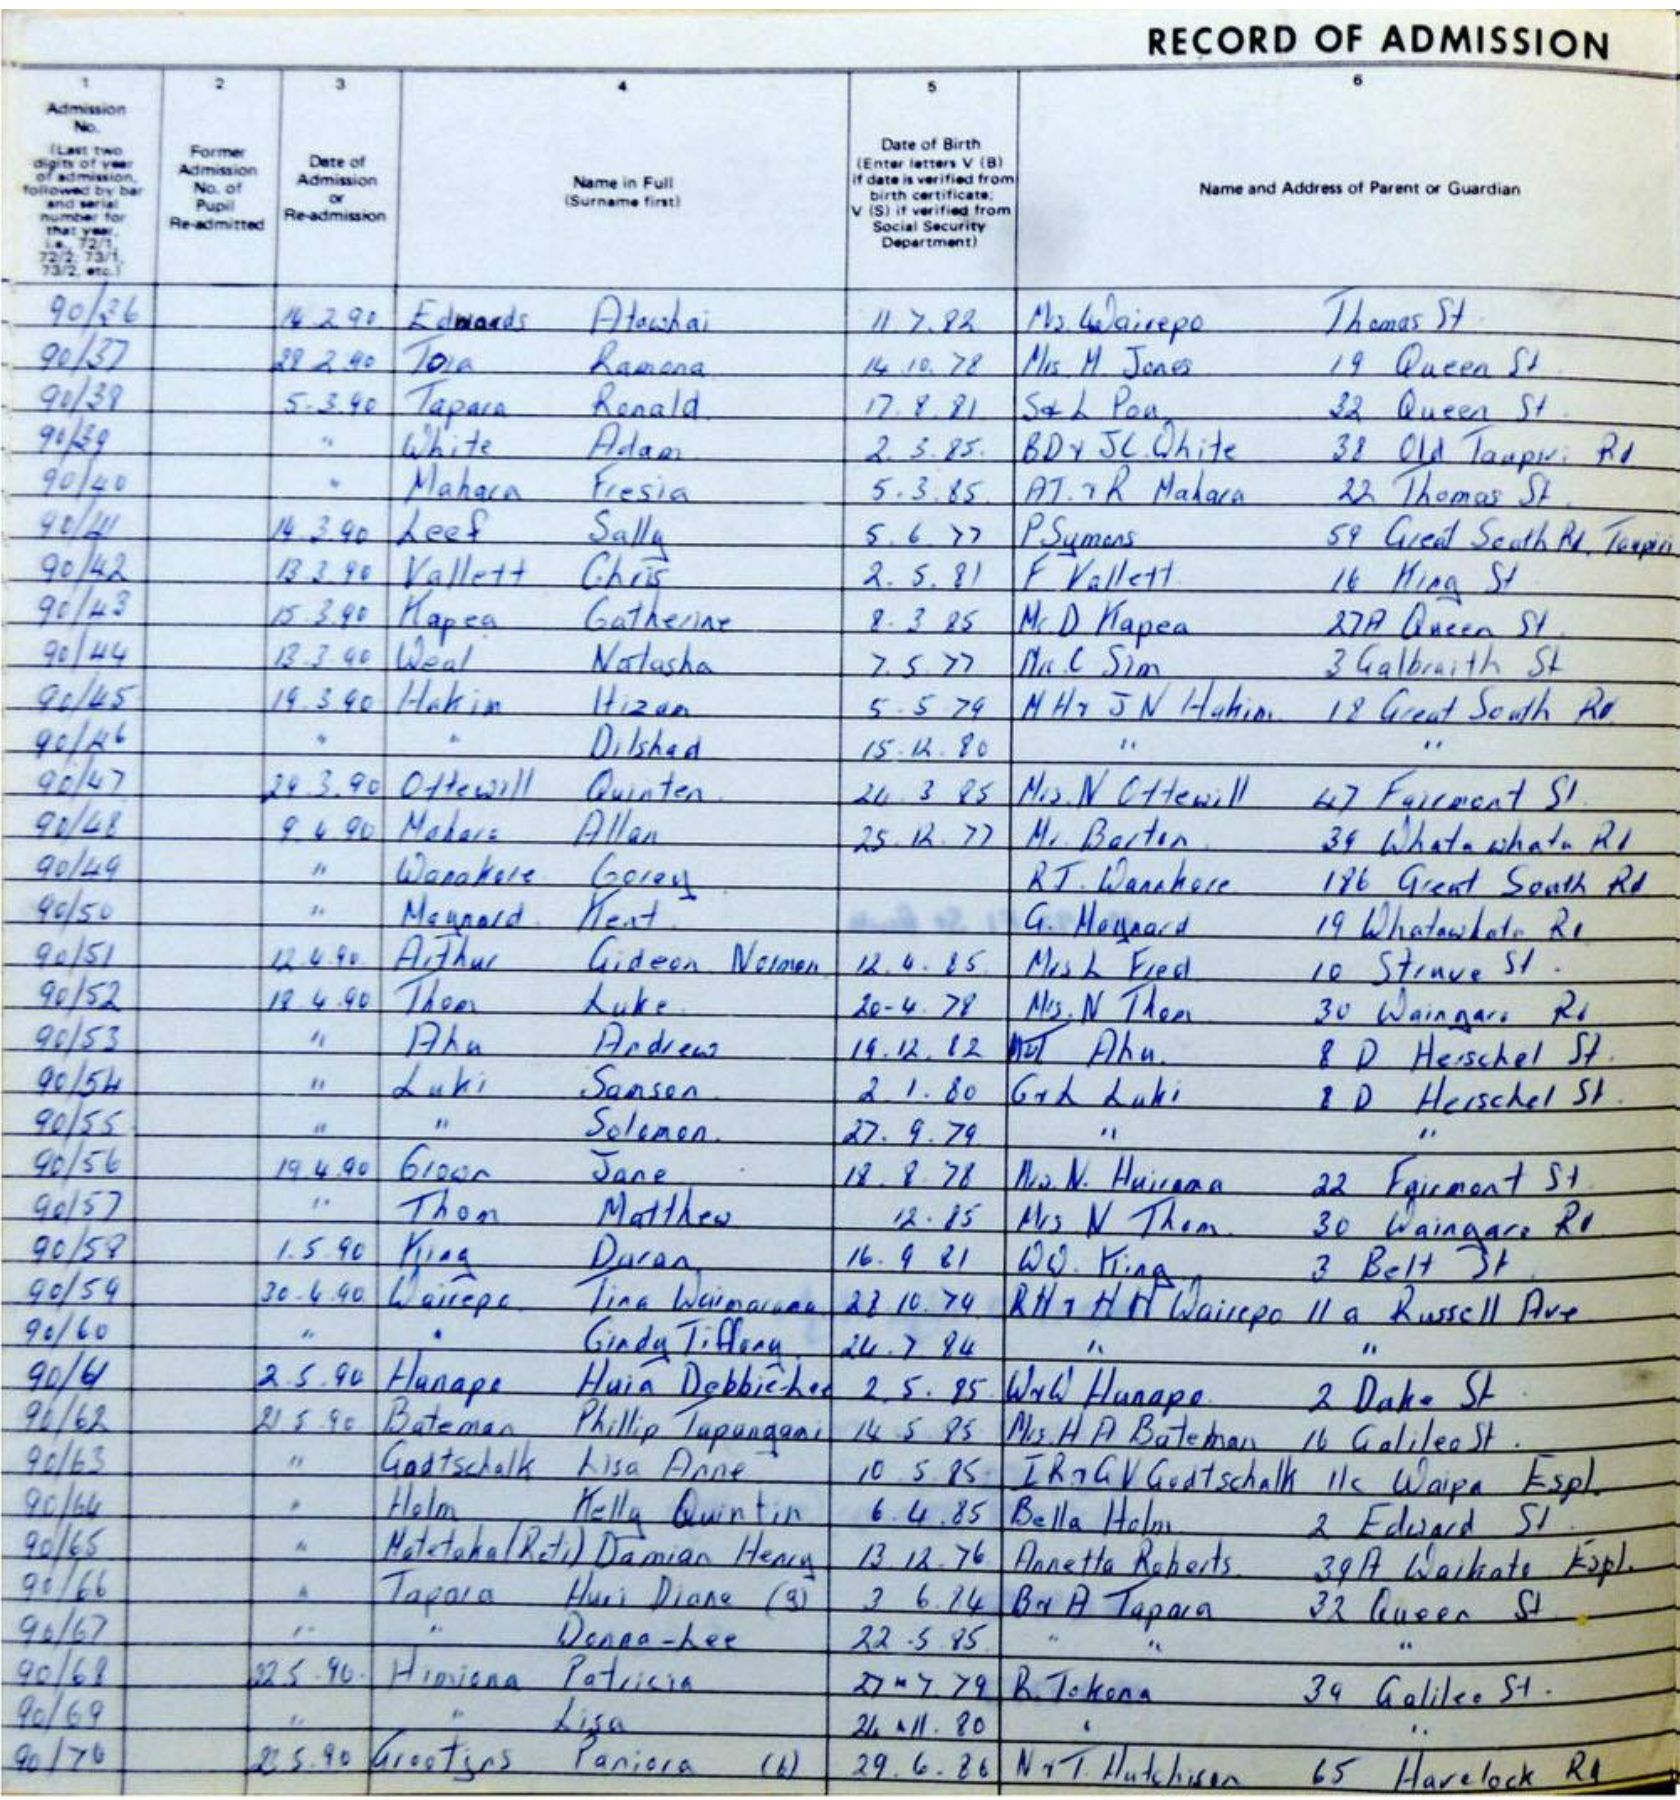 RECORD OF ADMISSION
1 2 3 4 5 6
Admission No. (Last two digits of year of admission, followed by bar and serial number for that year, i.e., 72/1, 72/2; 73/1, 73/2, etc.)
Former Admission No. of Pupil Re-admitted
Date of Admission or Re-admission
Name in Full (Surname first)
Date of Birth (Enter letters V (B) if date is verified from birth certificate; V (S) if verified from Social Security Department)
Name and Address of Parent or Guardian
90/36 14.2.90 Edwards Atawhai 11.7.82 Mrs Wairepo Thomas St
90/37 28.2.90 Toia Ramona 14.10.78 Mrs M Jones 19 Queen St
90/38 5.3.90 Tapara Ronald 17.8.81 S & L Pou 32 Queen St.
90/39 " White Adam 2.3.85. BD & JC White 38 Old Taupiri Rd
90/40 " Mahara Fresia 5.3.85. AT & R Mahara 22 Thomas St.
90/41 14.3.90 Leef Sally 5.6.77 P Symons 59 Great South Rd, Taupiri
90/42 13.3.90 Vallett Chris 2.5.81 F Vallett 16 King St
90/43 15.3.90 Kapea Catherine 8.3.85 Mr D Kapea 27A Queen St.
90/44 13.3.90 Weal Natasha 7.5.77 Mrs C Sim 3 Galbraith St
90/45 19.3.90 Hakim Hizan 5.5.79 M H & J N Hakim 18 Great South Rd
90/46 " " Dilshad 15.12.80 " "
90/47 29.3.90 Ottewill Quinten 24.3.85 Mrs. N Ottewill 47 Fairmont St.
90/48 9.4.90 Mahara Allan 25.12.77 Mr. Barton 39 Whatawhata Rd
90/49 " Wanakore Corey R J. Wanakore 186 Great South Rd
90/50 " Maynard Kent G. Maynard 19 Whatawhata Rd
90/51 12.4.90 Arthur Gideon Norman 12.4.85 Mrs L Fred 10 Struve St.
90/52 18.4.90 Thom Luke 20-4.78 Mrs. N Thom 30 Waingaro Rd
90/53 " Ahu Andrew 19.12.82 Ahu. 8 D Herschel St.
90/54 " Luki Samson 2.1.80 G & L Luki 8 D Herschel St.
90/55 " " Solomon. 27.9.79 " "
90/56 19.4.90 Green Jane 18.8.78 Mrs. N. Huirama 22 Fairmont St.
90/57 " Thom Matthew 12.85 Mrs N Thom 30 Waingaro Rd
90/58 1.5.90 King Duran 16.9.81 King 3 Belt St
90/59 30.4.90 Wairepo Tina 28.10.79 RH & HH Wairepo 11a Russell Ave
90/60 " " Cindy Tiffany 24.7.84 " "
90/61 2.5.90 Hunapo Huia Debbie-Lee 2.5.85 W & W Hunapo 2 Duke St
90/62 21.5.90 Bateman Phillip Tapangani 14.5.85 Mrs. H A Bateman 16 Galileo St.
90/63 " Godtschalk Lisa Anne 10.5.85 I R & G V Godtschalk 11c Waipa Espl.
90/64 " Holm Kelly Quintin 6.4.85 Bella Holm 2 Edward St.
90/65 " Matetaka (Reti) Damian Henry 13.12.76 Annetta Roberts 39A Waikato Espl.
90/66 " Tapara Huri Diane (g) 3.6.84 B & A Tapara 32 Queen St
90/67 " " Donna-Lee 22.5.85 " " "
90/68 22.5.90. Himiona Patricia 27.7.79 R. Tokona 39 Galileo St.
90/69 " " Lisa 24.11.80 " "
90/70 22.5.90 Grootjes Paniora (b) 29.6.86 N & T. Hutchison 65 Havelock Rd